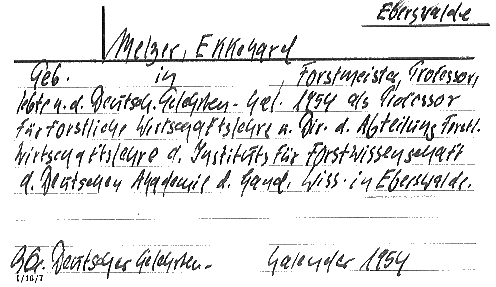 Eberswalde
Melzer, Ekkehard
Geb. in , Forstmeister, Professor,
lebte n. d. Deutsch. Gelehrten-Kal. 1954 als Professor
für forstliche Wirtschaftslehre u. Dir. d. Abteilung Forstl.
Wirtschaftslehre d. Instituts für Forstwissenschaft
d. Deutschen Akademie d. Landw. Wiss. in Eberswalde.
Deutscher Gelehrten- Kalender 1954